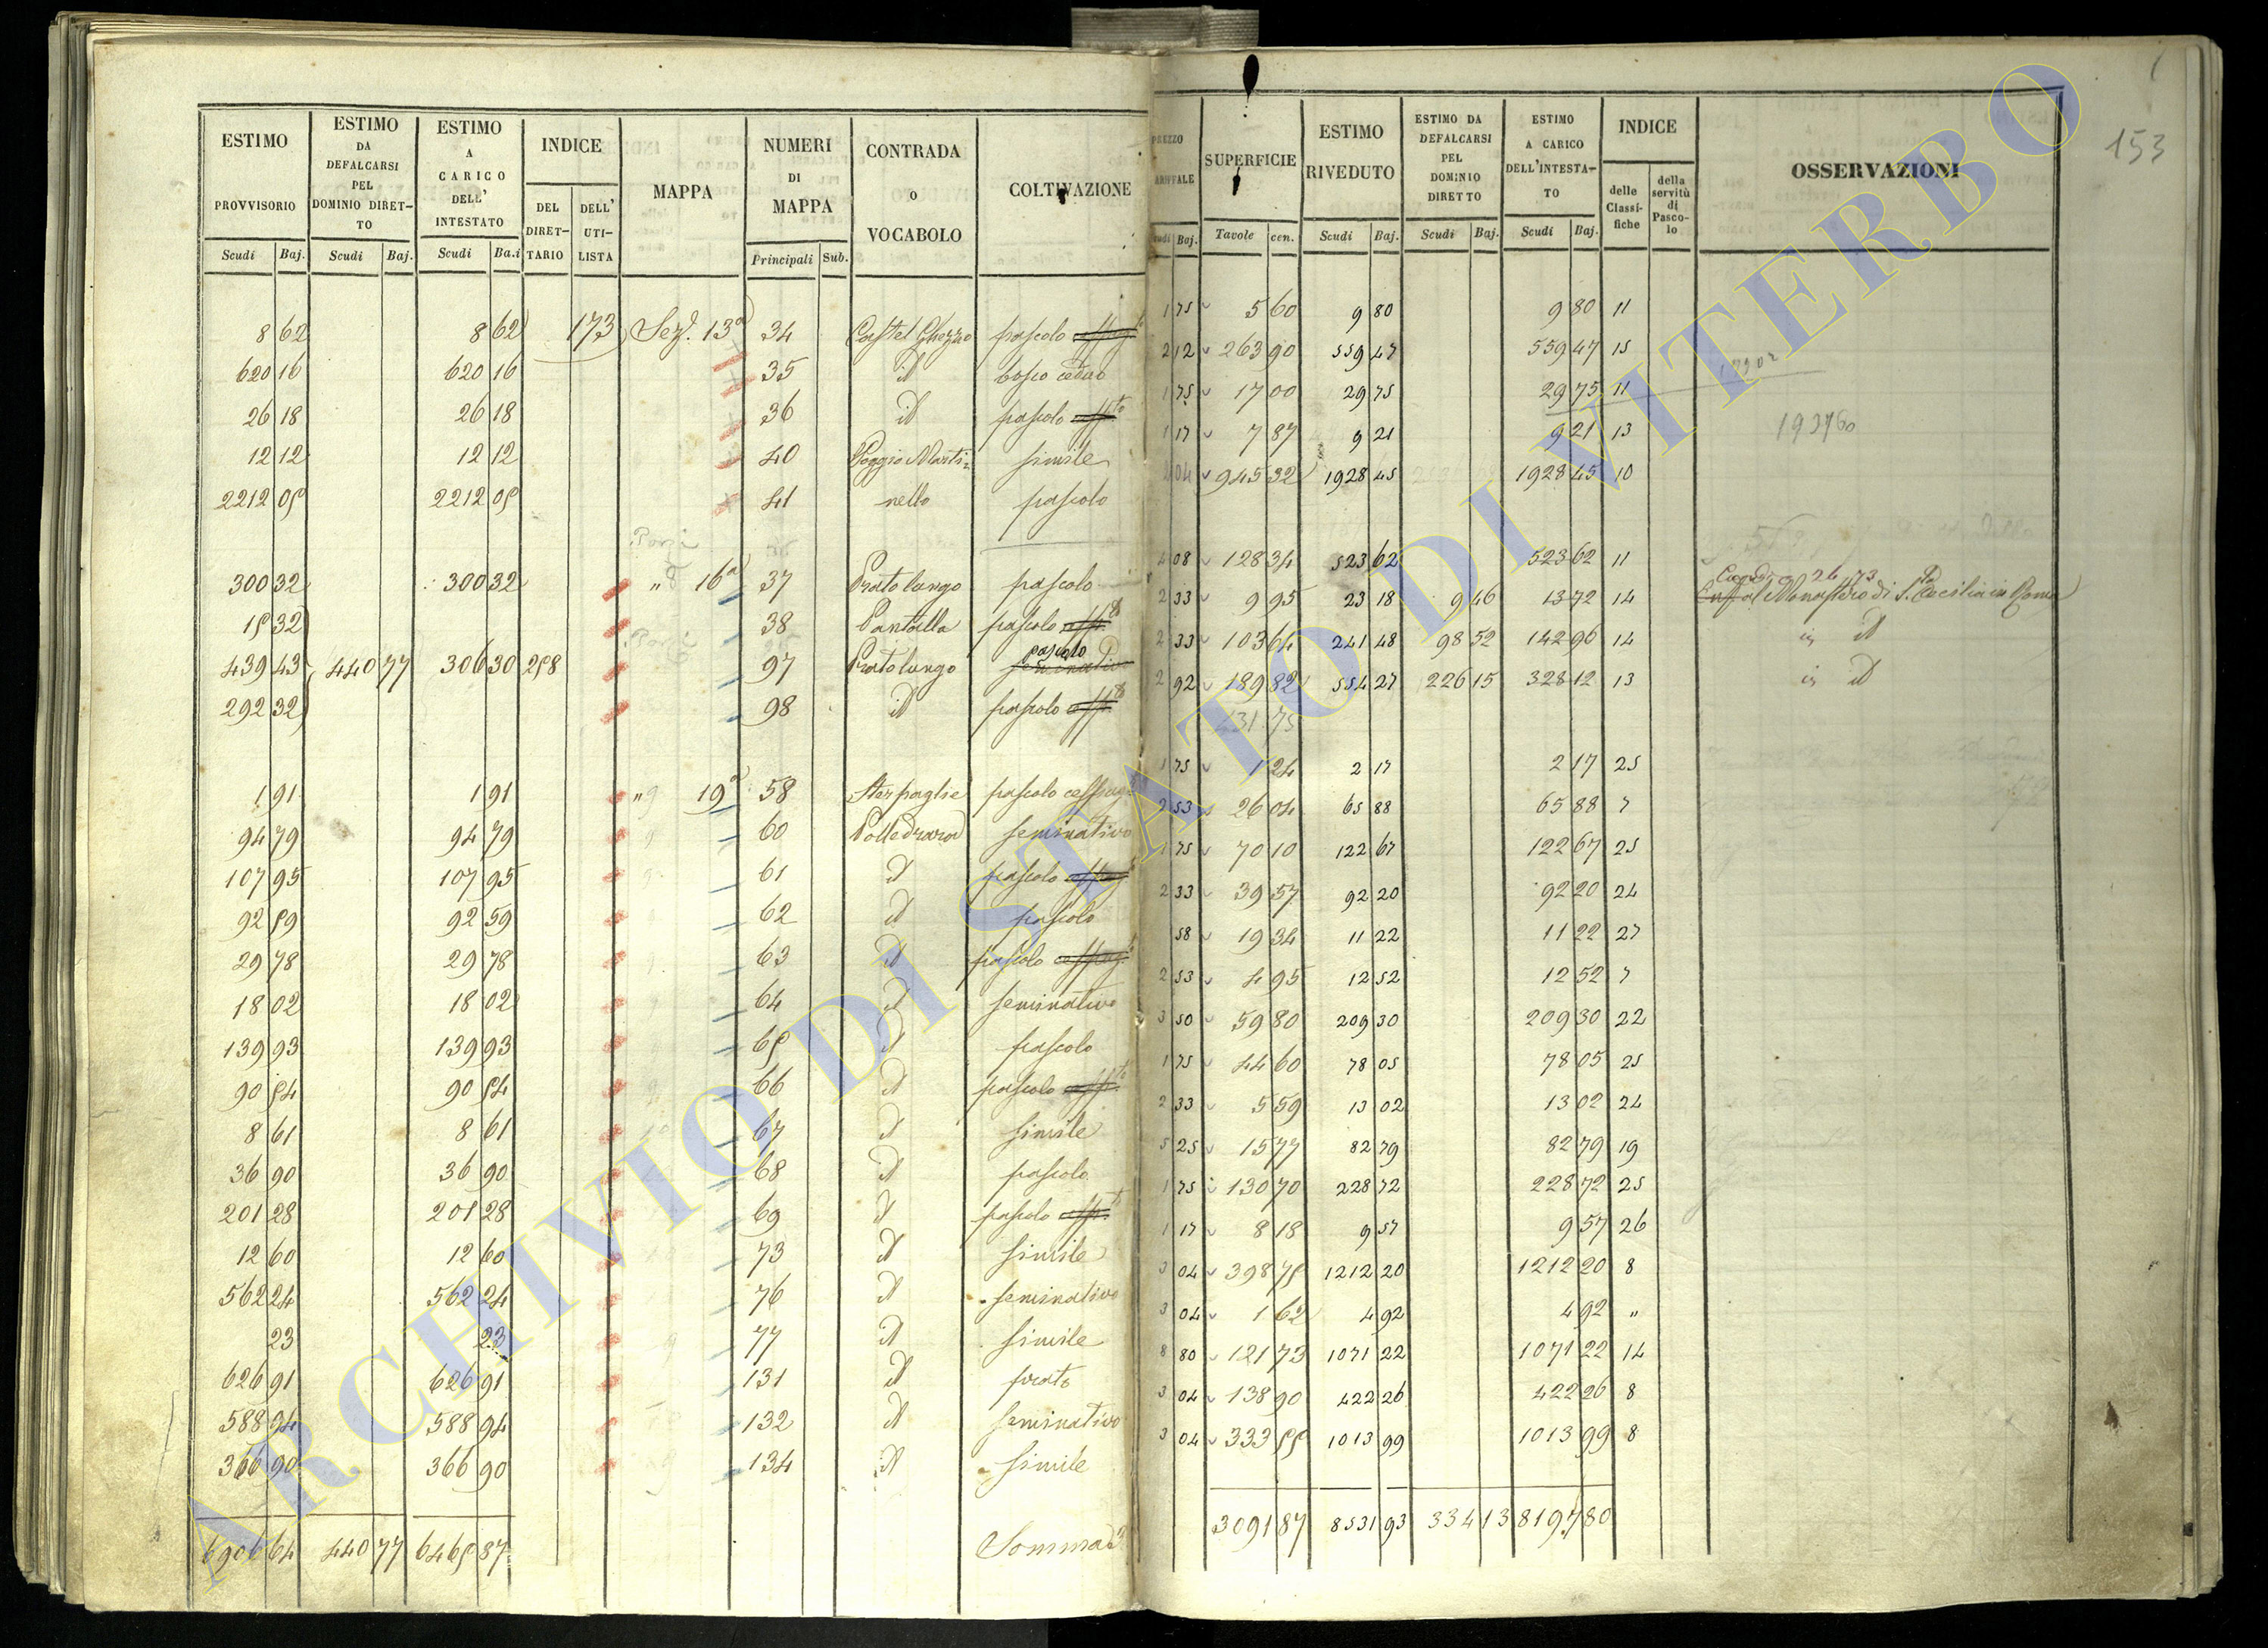 153
ESTIMO PROVVISORIO Scudi Baj. | ESTIMO DA DEFALCARSI PEL DOMINIO DIRETTO Scudi Baj. | ESTIMO A CARICO DELL' INTESTATO Scudi Ba.i | INDICE DEL DIRETTARIO | DELL' UTILISTA | MAPPA | NUMERI DI MAPPA Principali Sub. | CONTRADA o VOCABOLO | COLTIVAZIONE
8 62 8 62 173 Sez. 13a 34 Castel Ghezzo pascolo
620 16 620 16 35 id bosco ceduo
26 18 26 18 36 id pascolo
12 12 12 12 40 Poggio Marti= simile
2212 05 2212 05 41 nello pascolo
300 32 300 32 " 16a 37 Prato lungo pascolo
15 32 38 Pantalla pascolo
439 43 440 77 306 30 258 97 Prato lungo pascolo seminativo
292 32 98 id pascolo
1 91 1 91 " 19a 58 Sterpaglie pascolo
94 79 94 79 60 Polledrara seminativo
107 95 107 95 61 id pascolo
92 59 92 59 62 id pascolo
29 78 29 78 63 id pascolo
18 02 18 02 64 id seminativo
139 93 139 93 65 id pascolo
90 54 90 54 66 id pascolo
8 61 8 61 67 id simile
36 90 36 90 68 id pascolo
201 28 201 28 69 id pascolo
12 60 12 60 73 id simile
562 24 562 24 76 id seminativo
23 23 77 id simile
626 91 626 91 131 id prato
588 94 588 94 132 id seminativo
366 90 366 90 134 id simile
6906 64 440 77 6465 87 Somma
PREZZO ARIFFALE udi Baj. | SUPERFICIE Tavole cen. | ESTIMO RIVEDUTO Scudi Baj. | ESTIMO DA DEFALCARSI PEL DOMINIO DIRETTO Scudi Baj. | ESTIMO A CARICO DELL'INTESTATO Scudi Baj. | INDICE delle Classifiche | della servitù di Pascolo | OSSERVAZIONI
1 75 5 60 9 80 9 80 11
2 12 263 90 559 47 559 47 15
1 75 17 00 29 75 29 75 11
1 17 7 87 9 21 9 21 13
04 945 32 1928 45 1928 45 10
4 08 128 34 523 62 523 62 11
2 33 9 95 23 18 9 46 13 72 14 al Monastero di S. Cecilia in Roma
2 33 103 64 241 48 98 52 142 96 14 id
2 92 189 82 554 27 226 15 328 12 13 id
431 75
1 75 1 24 2 17 2 17 25
2 53 26 04 65 88 65 88 7
1 75 70 10 122 67 122 67 25
2 33 39 57 92 20 92 20 24
58 19 34 11 22 11 22 27
2 53 4 95 12 52 12 52 7
3 50 59 80 209 30 209 30 22
1 75 44 60 78 05 78 05 25
2 33 5 59 13 02 13 02 24
5 25 15 77 82 79 82 79 19
1 75 130 70 228 72 228 72 25
1 17 8 18 9 57 9 57 26
3 04 398 75 1212 20 1212 20 8
3 04 1 62 4 92 4 92 "
8 80 121 73 1071 22 1071 22 14
3 04 138 90 422 26 422 26 8
3 04 333 55 1013 99 1013 99 8
3091 87 8531 93 334 13 8197 80
ARCHIVIO DI STATO DI VITERBO